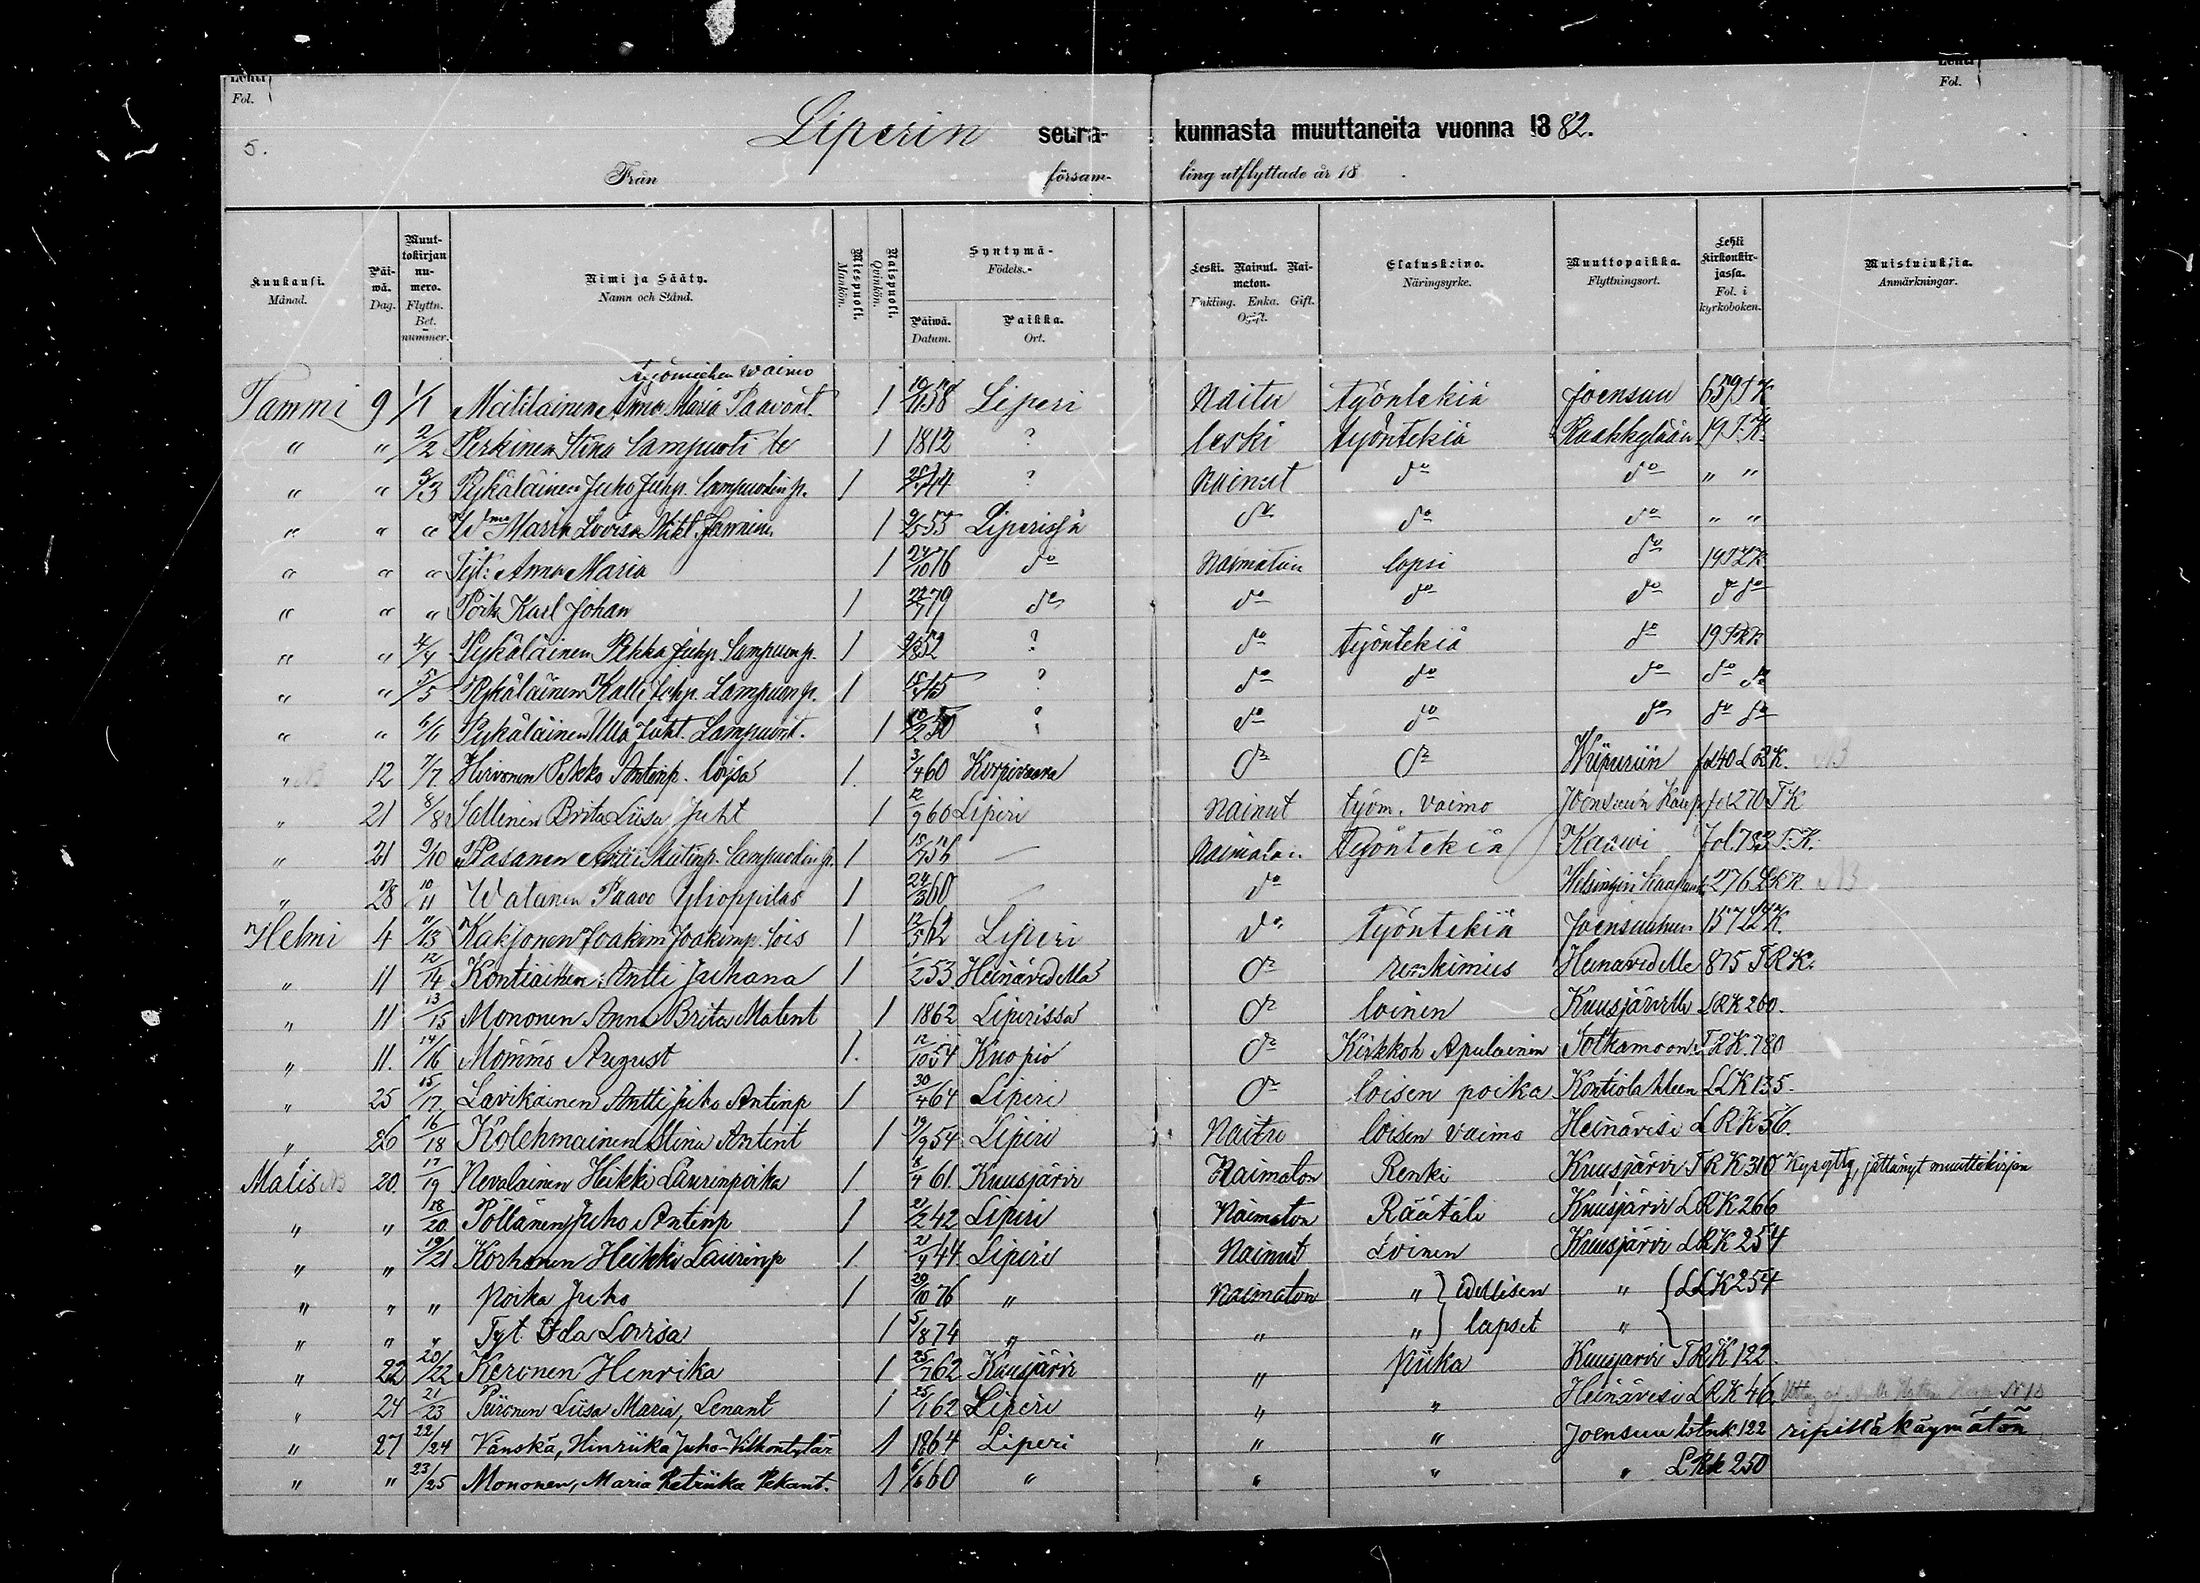 Lehti Fol. Lehti Fol.
5. Liperin seura- kunnasta muuttaneita vuonna 1882.
Från försam- ling utflyttade år 18
Kuukausi. Månad. Päi-wä. Dag. Muut-tokirjan nu-mero. Flyttn. Bet. nummer. Nimi ja Sääty. Namn och Stånd. Miespuoli. Mankön. Naispuoli. Qvinkön. Syntymä- Födels.- Päiwä. Datum. Paikka. Ort. Leski. Nainut. Nai-maton. Enkling. Enka. Gift. Ogift. Elatuskeino. Näringsyrke. Muuttopaikka. Flyttningsort. Lehti kirkonkir-jassa. Fol. i kyrkoboken. Muistutuksia. Anmärkningar.
Työmiehen vaimo
Tammi 9 1/1 Matilainen Anna Maria Paavont. 1 58 Liperi Naitu työntekiä Joensuu 659 T K
" " 2/2 Perkinen Stina Lampuoti le 1 1812 ? leski työntekiä Raakkylään 19 T.K.
" " 3/3 Pykäläinen Juho Juhp. Lampuodin p. 1 44 ? Nainut do do " "
" " " Wmo Maria Lovisa Mikl. 1 55 Liperissä do do do " "
" " " Tyt: Anna Maria 1 24/10 76 do Naimatoin lapsi do 19 T L K
" " " Poik Karl Johan 1 79 do do do do do do
" " 4/4 Pykäläinen Pekka Juhp. Lampuon p. 1 52 ? do työntekiä do 19 T R K
" " 5/5 Pykäläinen Kalle Johp. Lampuon p. 1 45 ? do do do do do
" " 6/6 Pykäläinen Ulla Juht. Lampuont. 1 50 ? do do do do do
" 12 7/7. Hirvonen Pekko Antinp. loisa 1. 3/4 60 Korpivaara do do Wiipuriin fol 40 L R K. NB
" 21 8/8 Sallinen Brita Liisa Juht 1 12/9 60 Liperi Nainut työm. vaimo Joensuun Kaup fol 270 T K
" 21 9/10 Pasanen Antti Matinp. Lampuodin p. 1 56 — Naimaton Työntekiä Kaawi Fol. 733 T.K.
" 28 10/11 Watanen Paavo Ylioppilas 1 24/3 60 — do Helsingin 276 L R K. NB
Helmi 4 11/13 Kakjonen Joakim Joakimp. lois 1 12/5 62 Liperi do Työntekiä Joensuuhun 157 L L K.
" 11 12/14 Kontiainen Antti Juhana 1 1/2 53. Heinävedellä do renkimies Heinävedelle 875 T R K.
" 11 13/15 Mononen Anna Brita Matent 1 1862 Liperissa do loinen Kuusjärvelle L R K 260.
" 11. 14/16 Mömmö August 1. 12/10 54 Kuopio do Kirkkoh Apulainen Sotkamoon T R K. 780
" 25 15/17 Lavikainen Antti Juho Antinp 1 30/4 64 Liperi do loisen poika Kontiolahteen L L K 135.
" 26 16/18 Kolehmainen Stina Antent 1 19/9 54 Liperi Naitu loisen vaimo Heinävesi L R K 56.
Malis NB 20. 17/19 Nevalainen Heikki Laurinpoika 1 8/4 61. Kuusjärvi Naimaton Renki Kuusjärvi T R K 310 jättänyt muuttokirjan
" " 18/20 Pöllänen Juho Antinp 1 21/2 42 Liperi Naimaton Räätäli Kuusjärvi L R K 266
" " 19/21 Korhonen Heikki Laurinp 1. 21/9 44. Liperi Nainut Loinen Kuusjärvi L R K 254
" " " Poika Juho 1 20/10 76 " Naimaton " } Edellisen " { L L K 254
" " " Tyt Ida Lovisa 1 5/8 74 " " " } lapset "
" 22 20/22 Keronen Henrika 1 25/7 62 Kuusjärvi " Piika Kuusjärvi T R K 122.
" 24 21/23 Piironen Liisa Maria, Lenant 1 25/1 62 Liperi " " Heinävesi L R K 46.
" 27 22/24 Vänskä, Hinriika Juho-Vilhont. 1 1864 Liperi " " Joensuu 122 ripillä käymätön
" " 23/25 Mononen, Maria Retriika Pekant. 1 6/6 60 " " " " L Rk 250